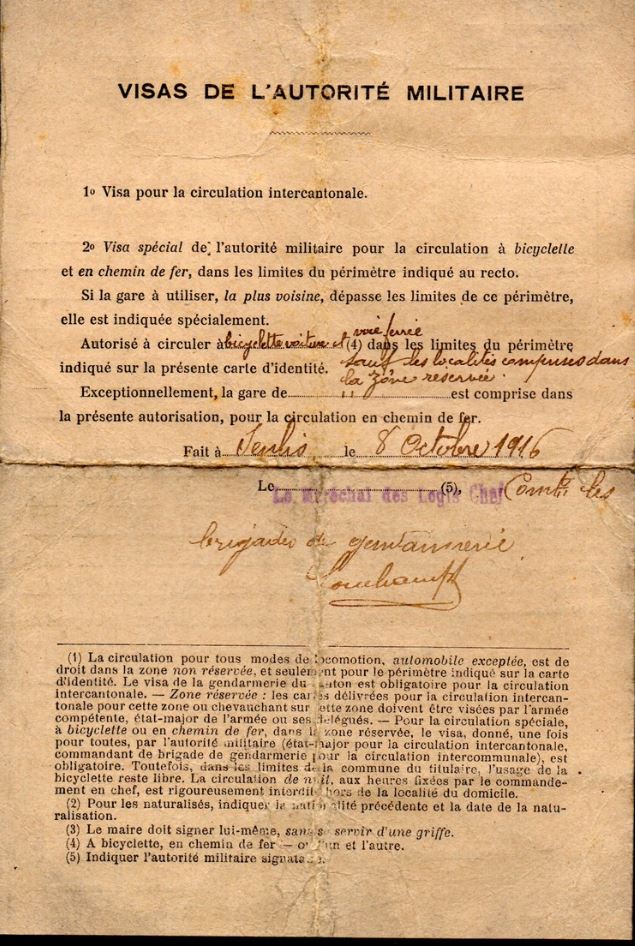 VISAS DE L'AUTORITÉ MILITAIRE
1º Visa pour la circulation intercantonale.
2º Visa spécial de l'autorité militaire pour la circulation à bicyclette
et en chemin de fer, dans les limites du périmètre indiqué au recto.
Si la gare à utiliser, la plus voisine, dépasse les limites de ce périmètre,
elle est indiquée spécialement.
voie ferrée
Autorisé à circuler à bicyclette voiture et (4) dans les limites du périmètre
indiqué sur la présente carte d'identité. sauf des localités comprises dans
la zône reservée.
Exceptionnellement, la gare de " est comprise dans
la présente autorisation, pour la circulation en chemin de fer.
Fait à Senlis le 8 Octobre 1916
Le Le Maréchal des Logis Chef (5), Comt les
brigades de gendarmerie
(1) La circulation pour tous modes de locomotion, automobile exceptée, est de
droit dans la zone non réservée, et seulement pour le périmètre indiqué sur la carte
d'identité. Le visa de la gendarmerie du canton est obligatoire pour la circulation
intercantonale. — Zone réservée : les cartes délivrées pour la circulation intercan-
tonale pour cette zone ou chevauchant sur cette zone doivent être visées par l'armée
compétente, état-major de l'armée ou ses délégués. — Pour la circulation spéciale,
à bicyclette ou en chemin de fer, dans la zone réservée, le visa, donné, une fois
pour toutes, par l'autorité militaire (état-major pour la circulation intercantonale,
commandant de brigade de gendarmerie pour la circulation intercommunale), est
obligatoire. Toutefois, dans les limites de la commune du titulaire, l'usage de la
bicyclette reste libre. La circulation de nuit, aux heures fixées par le commande-
ment en chef, est rigoureusement interdite hors de la localité du domicile.
(2) Pour les naturalisés, indiquer la nationalité précédente et la date de la natu-
ralisation.
(3) Le maire doit signer lui-même, sans se servir d'une griffe.
(4) A bicyclette, en chemin de fer — ou l'un et l'autre.
(5) Indiquer l'autorité militaire signataire.